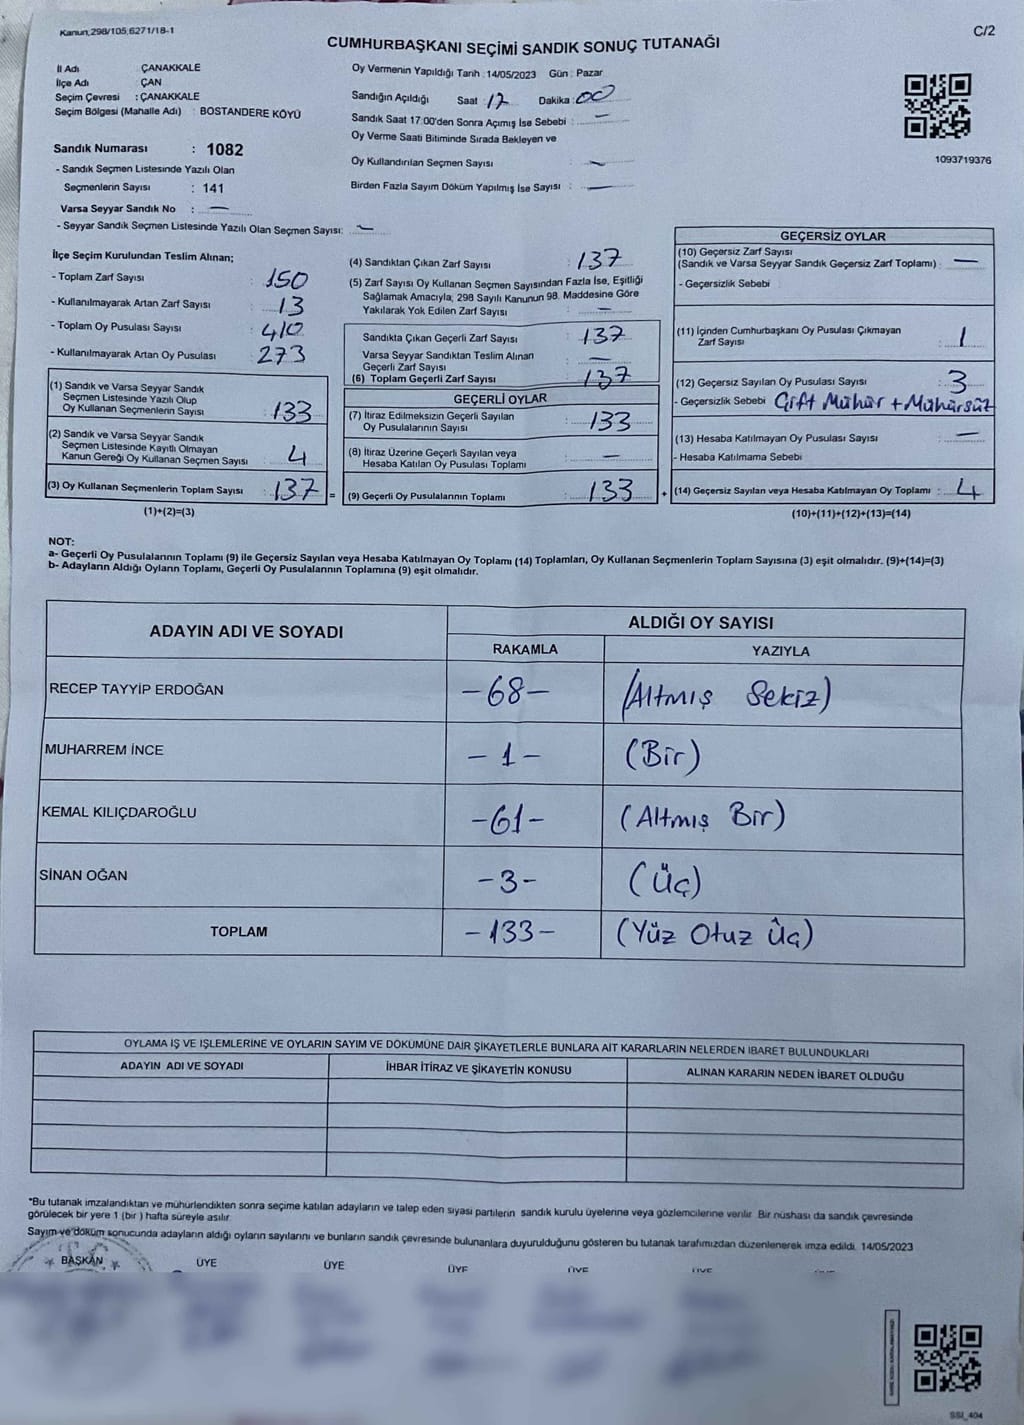 Kanun;298/105;6271/18-1
C/2
CUMHURBAŞKANI SEÇİMİ SANDIK SONUÇ TUTANAĞI
İl Adı ÇANAKKALE
İlçe Adı ÇAN
Seçim Çevresi : ÇANAKKALE
Seçim Bölgesi (Mahalle Adı) : BOSTANDERE KÖYÜ
Sandık Numarası : 1082
- Sandık Seçmen Listesinde Yazılı Olan
Seçmenlerin Sayısı : 141
Varsa Seyyar Sandık No : —
- Seyyar Sandık Seçmen Listesinde Yazılı Olan Seçmen Sayısı: —
Oy Vermenin Yapıldığı Tarih : 14/05/2023 Gün : Pazar
Sandığın Açıldığı Saat : 17 Dakika : 00
Sandık Saat 17:00'den Sonra Açımış İse Sebebi : —
Oy Verme Saati Bitiminde Sırada Bekleyen ve
Oy Kullandırılan Seçmen Sayısı : —
Birden Fazla Sayım Döküm Yapılmış İse Sayısı : —
1093719376
İlçe Seçim Kurulundan Teslim Alınan;
- Toplam Zarf Sayısı : 150
- Kullanılmayarak Artan Zarf Sayısı : 13
- Toplam Oy Pusulası Sayısı : 410
- Kullanılmayarak Artan Oy Pusulası : 273
(1) Sandık ve Varsa Seyyar Sandık
Seçmen Listesinde Yazılı Olup
Oy Kullanan Seçmenlerin Sayısı : 133
(2) Sandık ve Varsa Seyyar Sandık
Seçmen Listesinde Kayıtlı Olmayan
Kanun Gereği Oy Kullanan Seçmen Sayısı : 4
(3) Oy Kullanan Seçmenlerin Toplam Sayısı : 137 =
(1)+(2)=(3)
(4) Sandıktan Çıkan Zarf Sayısı : 137
(5) Zarf Sayısı Oy Kullanan Seçmen Sayısından Fazla İse, Eşitliği
Sağlamak Amacıyla; 298 Sayılı Kanunun 98. Maddesine Göre
Yakılarak Yok Edilen Zarf Sayısı : —
Sandıkta Çıkan Geçerli Zarf Sayısı : 137
Varsa Seyyar Sandıktan Teslim Alınan
Geçerli Zarf Sayısı : —
(6) Toplam Geçerli Zarf Sayısı : 137
GEÇERLİ OYLAR
(7) İtiraz Edilmeksizin Geçerli Sayılan
Oy Pusulalarının Sayısı : 133
(8) İtiraz Üzerine Geçerli Sayılan veya
Hesaba Katılan Oy Pusulası Toplamı : —
(9) Geçerli Oy Pusulalarının Toplamı : 133 +
GEÇERSİZ OYLAR
(10) Geçersiz Zarf Sayısı
(Sandık ve Varsa Seyyar Sandık Geçersiz Zarf Toplamı) : —
- Geçersizlik Sebebi
(11) İçinden Cumhurbaşkanı Oy Pusulası Çıkmayan
Zarf Sayısı : 1
(12) Geçersiz Sayılan Oy Pusulası Sayısı : 3
- Geçersizlik Sebebi Çift Mühür + Mühürsüz
(13) Hesaba Katılmayan Oy Pusulası Sayısı : —
- Hesaba Katılmama Sebebi
(14) Geçersiz Sayılan veya Hesaba Katılmayan Oy Toplamı : 4
(10)+(11)+(12)+(13)=(14)
NOT:
a- Geçerli Oy Pusulalarının Toplamı (9) ile Geçersiz Sayılan veya Hesaba Katılmayan Oy Toplamı (14) Toplamları, Oy Kullanan Seçmenlerin Toplam Sayısına (3) eşit olmalıdır. (9)+(14)=(3)
b- Adayların Aldığı Oyların Toplamı, Geçerli Oy Pusulalarının Toplamına (9) eşit olmalıdır.
ADAYIN ADI VE SOYADI
ALDIĞI OY SAYISI
RAKAMLA YAZIYLA
RECEP TAYYİP ERDOĞAN -68- (Altmış Sekiz)
MUHARREM İNCE -1- (Bir)
KEMAL KILIÇDAROĞLU -61- (Altmış Bir)
SİNAN OĞAN -3- (Üç)
TOPLAM -133- (Yüz Otuz Üç)
OYLAMA İŞ VE İŞLEMLERİNE VE OYLARIN SAYIM VE DÖKÜMÜNE DAİR ŞİKAYETLERLE BUNLARA AİT KARARLARIN NELERDEN İBARET BULUNDUKLARI
ADAYIN ADI VE SOYADI İHBAR İTİRAZ VE ŞİKAYETİN KONUSU ALINAN KARARIN NEDEN İBARET OLDUĞU
*Bu tutanak imzalandıktan ve mühürlendikten sonra seçime katılan adayların ve talep eden siyasi partilerin sandık kurulu üyelerine veya gözlemcilerine verilir. Bir nüshası da sandık çevresinde
görülecek bir yere 1 (bir ) hafta süreyle asılır.
Sayım ve döküm sonucunda adayların aldığı oyların sayılarını ve bunların sandık çevresinde bulunanlara duyurulduğunu gösteren bu tutanak tarafımızdan düzenlenerek imza edildi. 14/05/2023
BAŞKAN ÜYE ÜYE ÜYE ÜYE ÜYE ÜYE
SSI_404